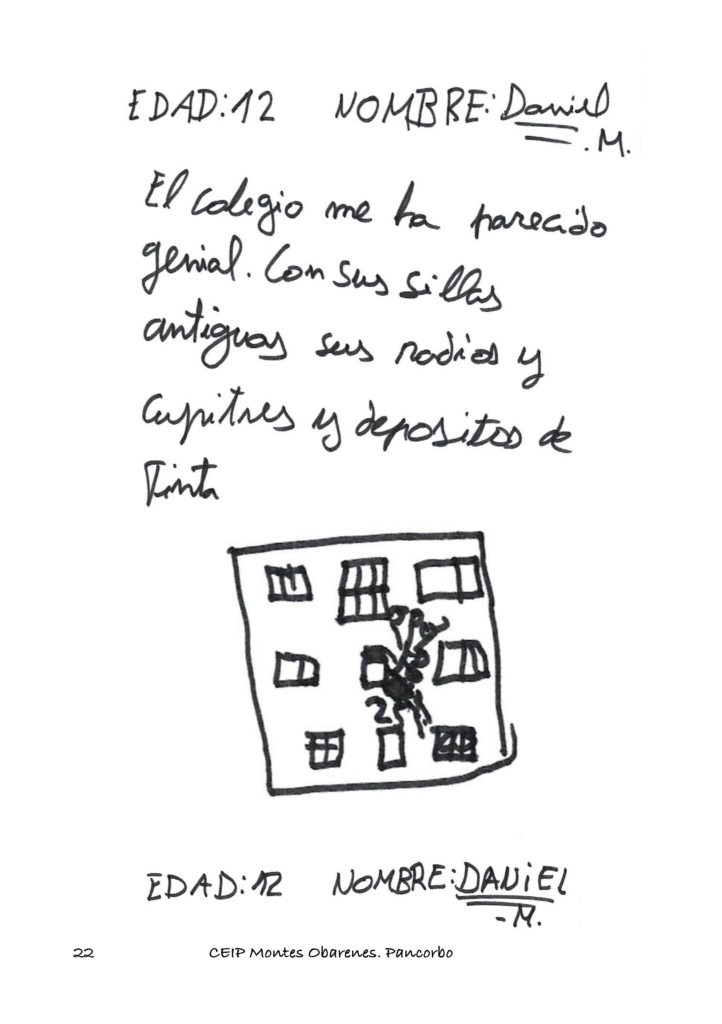 EDAD:12 NOMBRE:Daniel
.M.
El colegio me ha parecido
genial. Con sus sillas
antiguas sus radios y
Cupitres y depositos de
Tinta
EDAD:12 NOMBRE:DANiEL
-M.
22 CEIP Montes Obarenes. Pancorbo